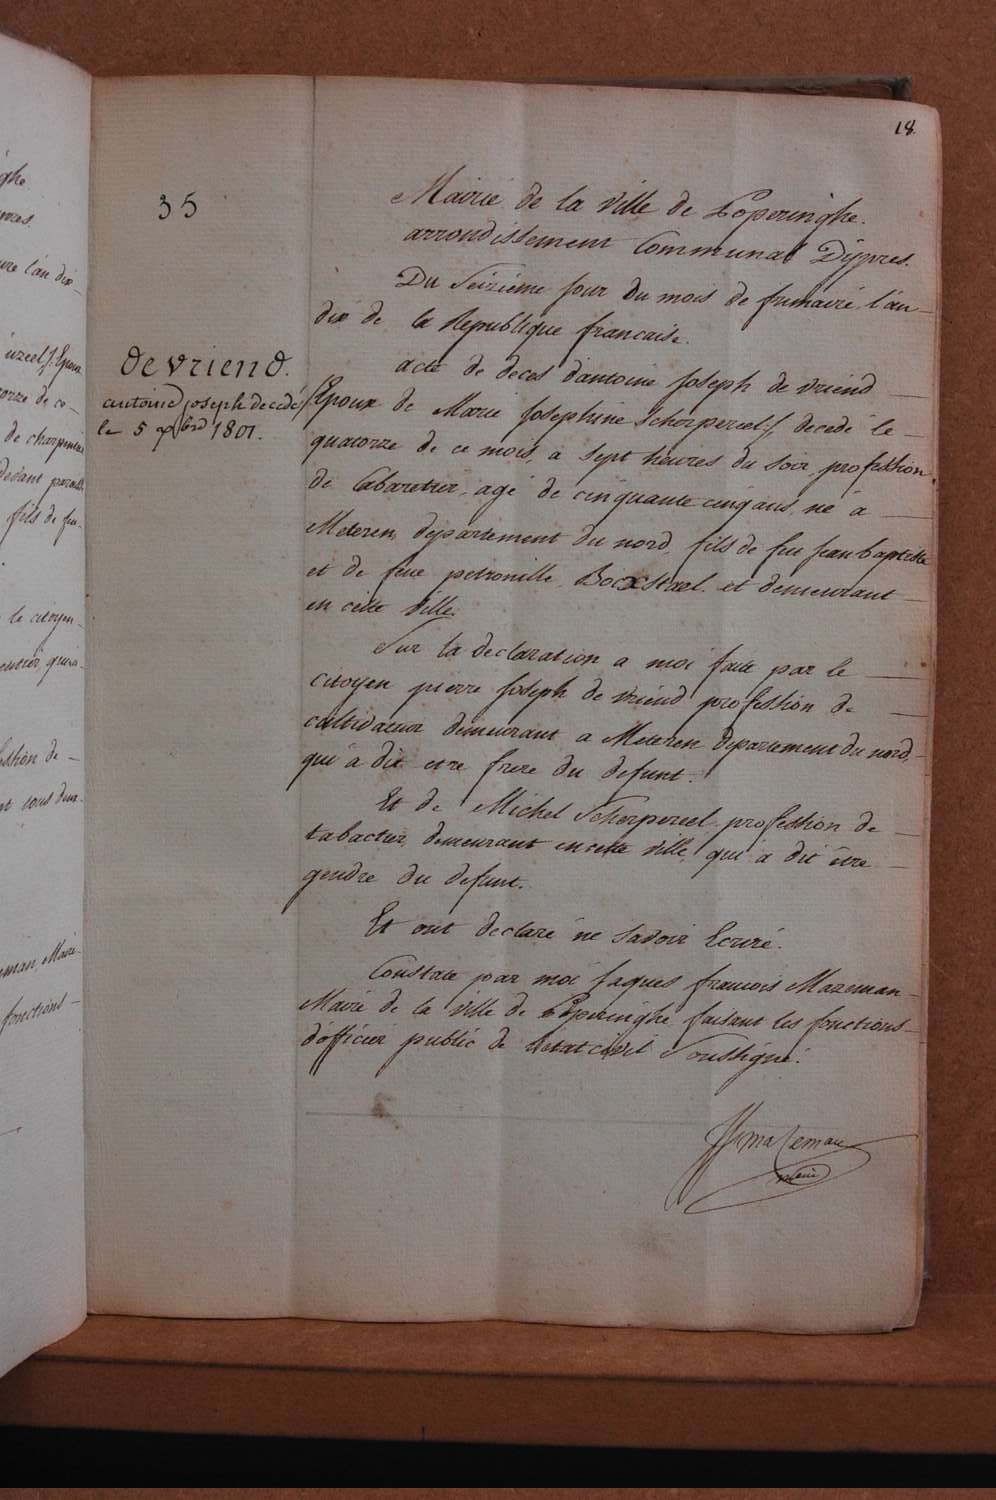 18.
35
Mairie de la ville de Poperinghe.
arrondissement Communal D'ypres.
Du Seizieme jour du mois de frimaire l'an
dix de la Republique francaise.
devriend.
antoine joseph decedé
le 5 xbre 1801.
acte de deces d'antoine joseph de vriend
/Epoux de Marie Josephine Scherpereel/ decedé le
quatorze de ce mois, a sept heures du soir, profession
de Cabaretier, agé de cinquante cinq ans, né a
Meteren, departement du nord, fils de feu jean baptiste
et de feue petronille Bocxstael et demeurant
en cette ville.
Sur la declaration a moi faite par le
citoyen pierre joseph de vriend profession de
cultivateur demeurant a Meteren departement du nord,
qui a dit etre frere du defunt.
Et de Michel Scherpereel profession de
tabactier, demeurant en cette ville, qui a dit être
gendre du defunt.
Et ont declaré ne savoir Ecrire.
Constaté par moi Jaques francois Mazeman
Maire de la ville de Poperinghe faisant les fonctions
d'officier public de l'etat civil Soussigné.
JF Mazeman
maire
ghe
l'an dix
uzeel/ Epoux
de co
de charpentier
fils de feu
le citoyen
fession de
Maire
fonctions